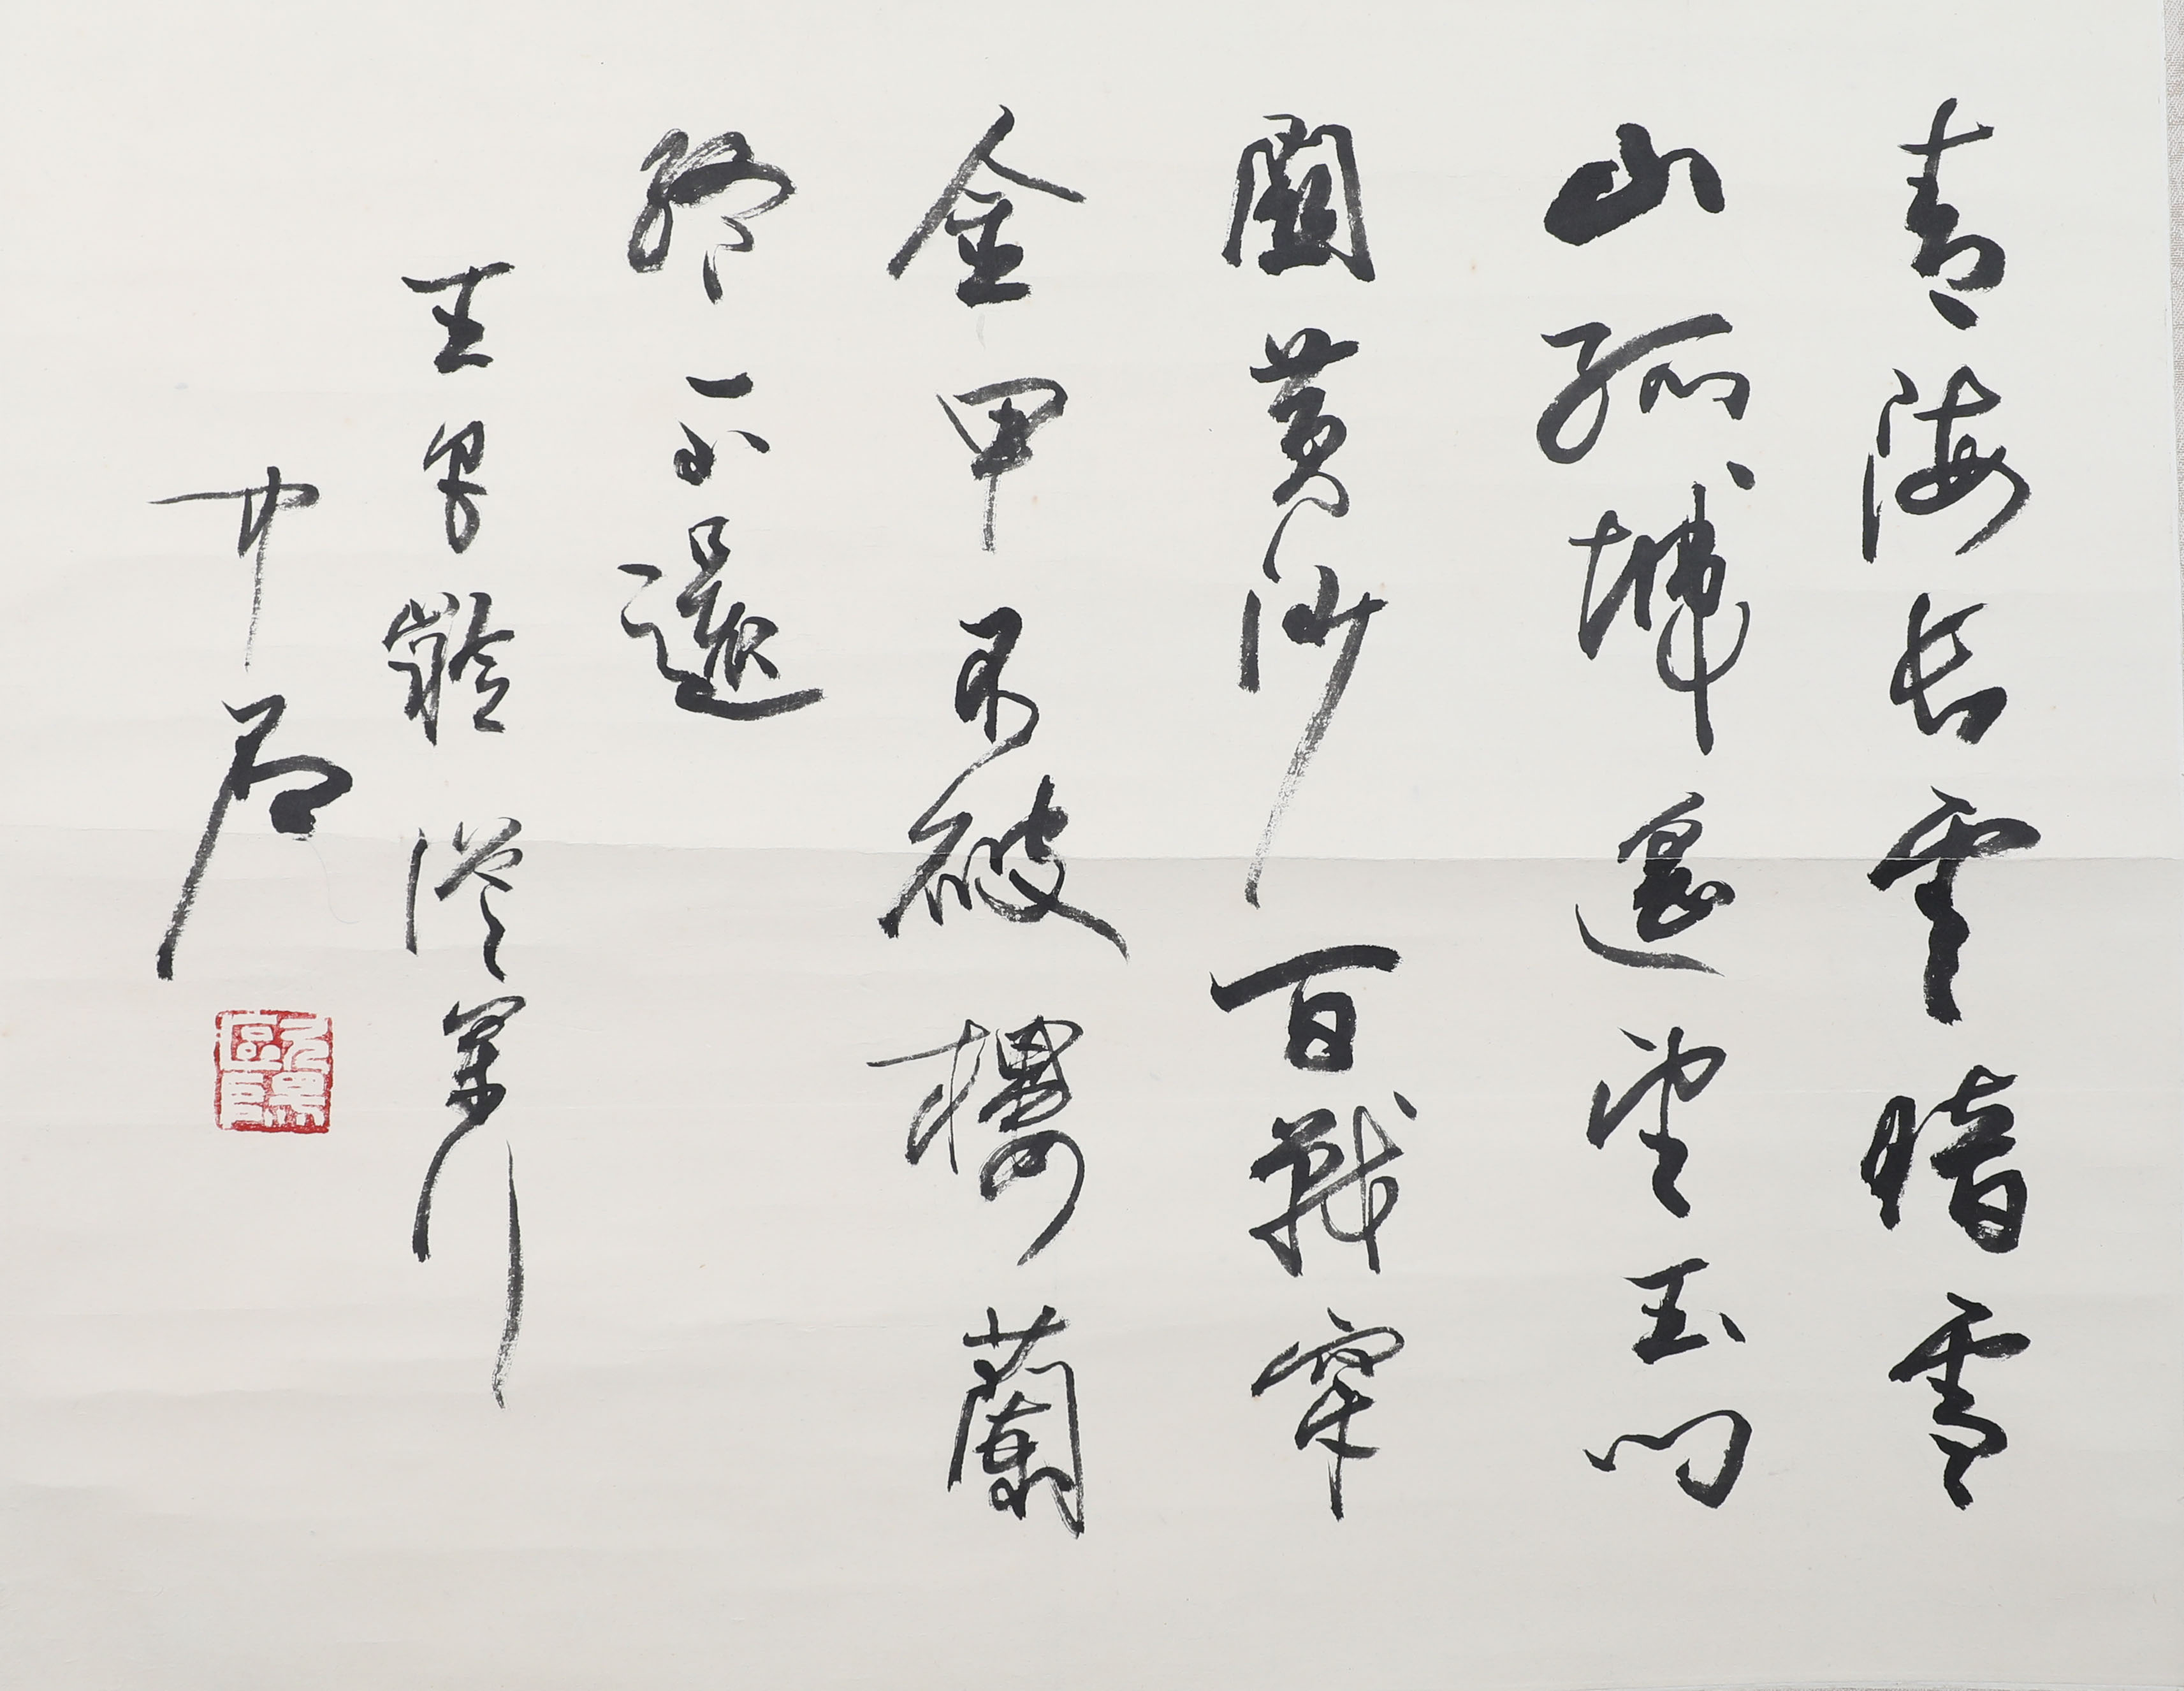 青海長雲暗雪
山孤城遙望玉門
關黃沙百戰穿
金甲不破樓蘭
終不還
王昌齡從軍行
中石